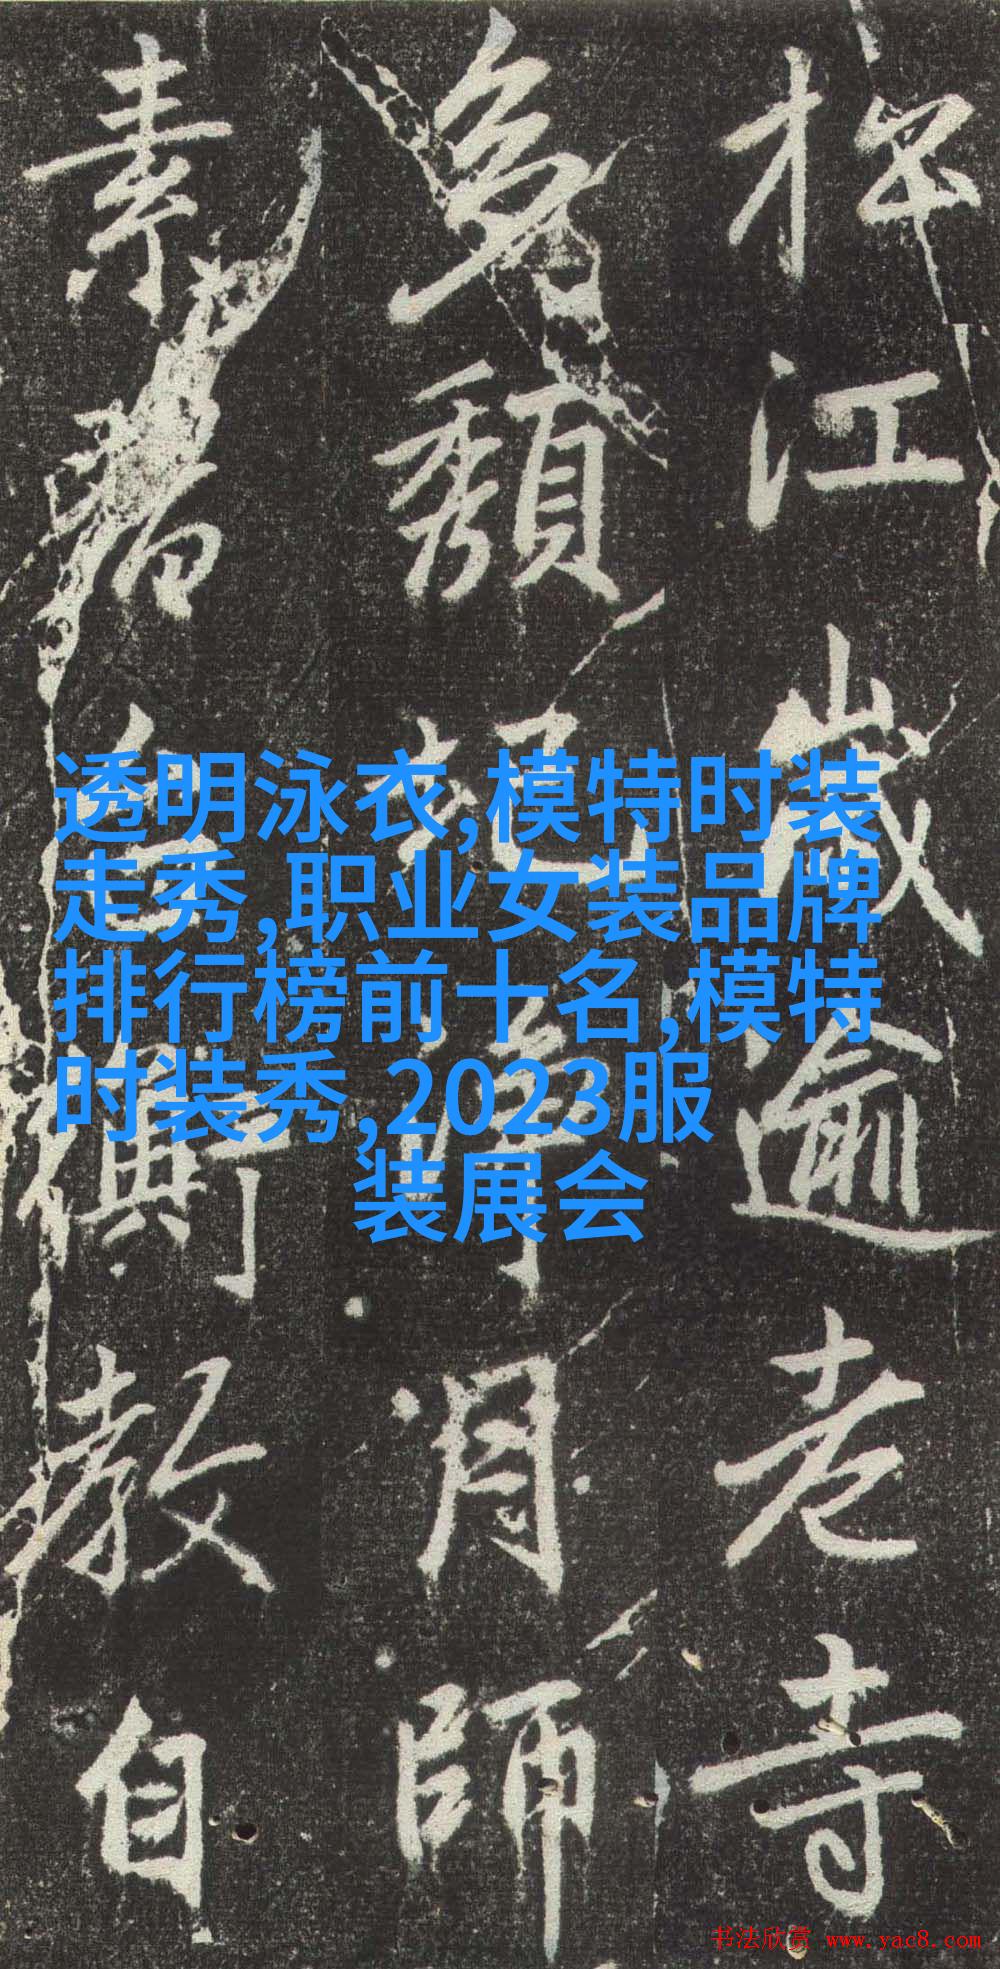 江歲逾老寺
頽圮月師
素著教自
透明泳衣,模特时装
走秀,职业女装品牌
排行榜前十名,模特
时装秀,2023服
装展会
书法欣赏 www.yac8.com